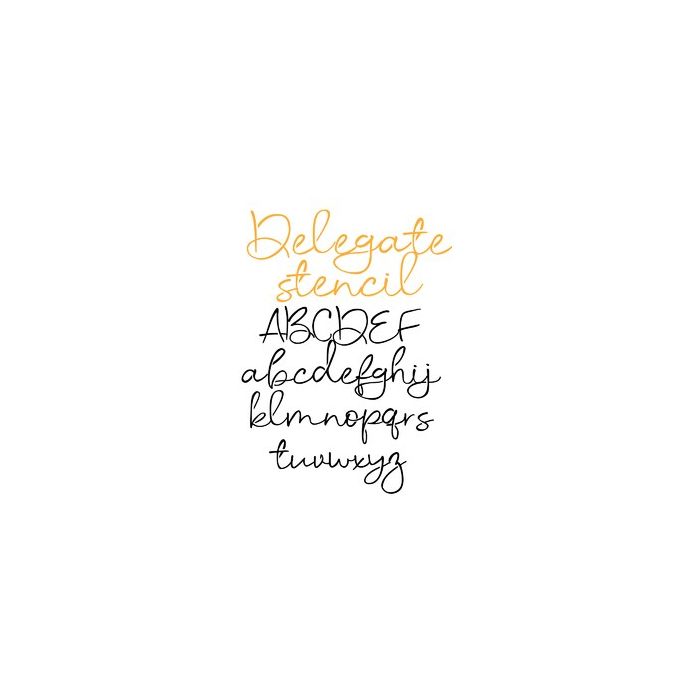 Delegate
stencil
ABCDEF
abcdefghij
klmnopqrs
tuvwxyz